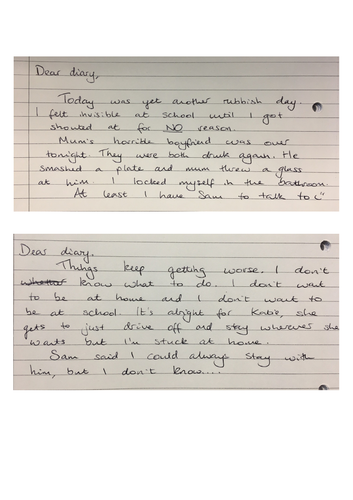 Dear diary,
Today was yet another rubbish day.
I felt invisible at school until I got
shouted at for NO reason.
Mum's horrible boyfriend was over
tonight. They were both drunk again. He
smashed a plate and mum threw a glass
at him I locked myself in the bathroom.
At least I have Sam to talk to
Dear diary.
Things keep getting worse. I don't
know what to do. I don't want
to be at home and I don't want to
be at school. It's alright for Katie, she
gets to just drive off and stay wherever she
wants but I'm stuck at home.
Sam said I could always stay with
him, but I don't know....